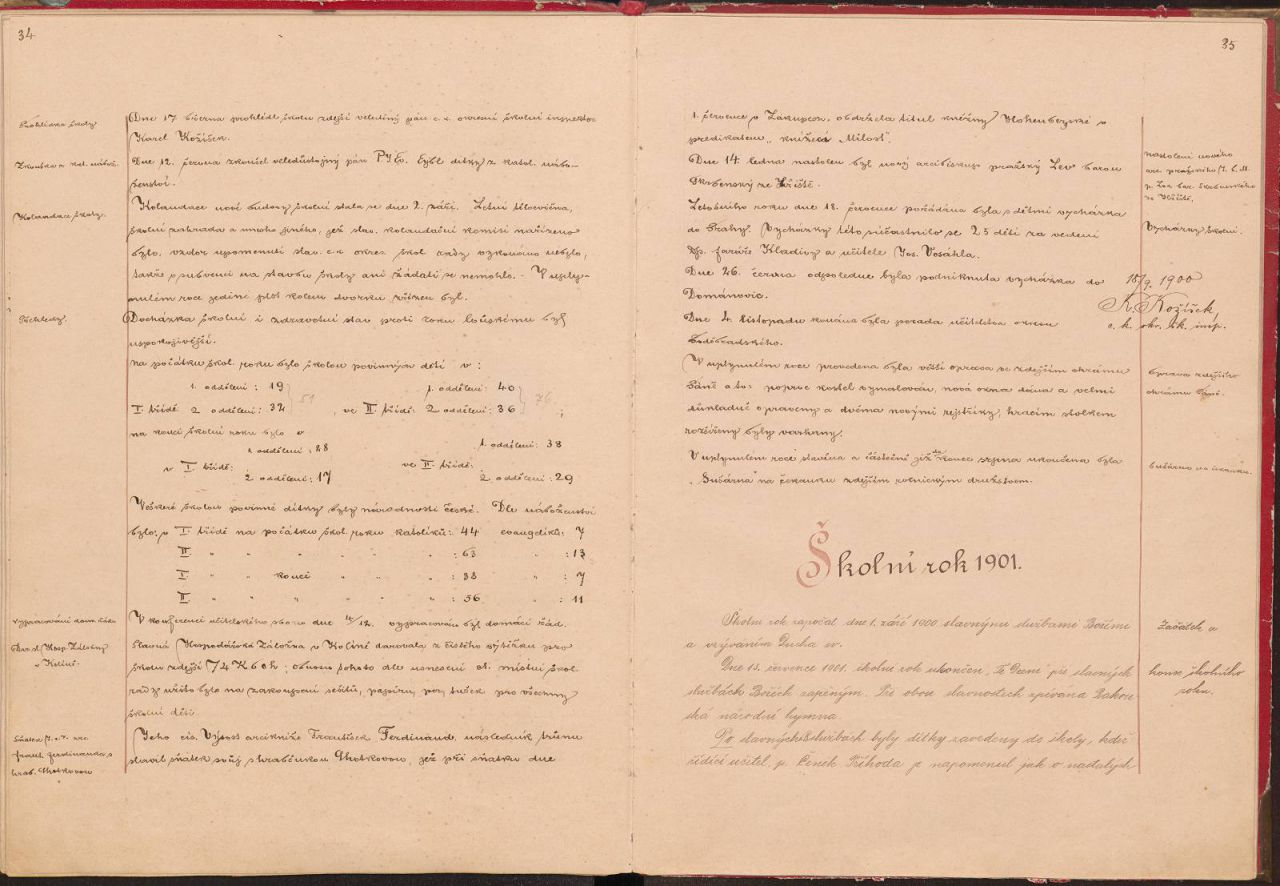 34
Prohlídka školy
Dne 17. března prohlédl školu zdejší velectěný pán c. k. okresní školní inspektor
Karel Kožíšek.
Zkouška z nábož.
Dne 12. června zkoušel veledůstojný pán P. Eybl dítky z katol. nábo-
ženství.
Kolaudace školy.
Kolaudace nové budovy školní stala se dne 2. září. Letní tělocvična,
školní zahrada a mnoho jiného, jež slav. kolaudační komisí nařízeno
bylo, vzdor upomenutí slav. c. k. okres. škol. rady vykonáno nebylo,
takže o subvenci na stavbu školy ani žádati se nemohlo. - V uply-
nulém roce jedině plot kolem dvorku zřízen byl.
Přehledy.
Docházka školní i zdravotní stav proti roku loňskému byl
uspokojivější.
na počátku škol. roku bylo školou povinných dětí v:
1. oddělení: 19 1. oddělení: 40
I. třídě 2 oddělení: 32 51, ve II. třídě: 2 oddělení: 36 76;
na konci školní roku bylo v
1 oddělení: 28 1. oddělení: 38
v I. třídě: ve II. třídě:
2 oddělení: 17 2 oddělení: 29
Veškeré školou povinné dítky byly národnosti české. Dle náboženství
bylo: v I. třídě na počátku škol. roku katolíků: 44 evangelíků: 7
II " " " " " : 63 " : 13
I " " konci " " " : 38 " : 7
II " " " " " : 56 " : 11
Vypracování dom. řádu
V konferenci učitelského sboru dne 4/12. vypracován byl domácí řád.
Dar sl. Hosp. Záložny
v Kolíně
Slavná Hospodářská Záložna v Kolíně darovala z čistého výtěžku pro
školu zdejší 74 K 60 h; obnosu tohoto dle usnesení sl. místní škol.
rady užito bylo na zakoupení sešitů, papíru, per, tužek pro všechny
školní děti.
Sňatek J. c. V. arc.
Frant. Ferdinanda s
hrab. Chotkovou
Jeho cis. Výsost arcikníže František Ferdinand, následník trůnu
slavil sňatek svůj s hraběnkou Chotkovou, jež při sňatku dne
35
1. července v Zákupech, obdržela titul kněžny Hohenberské s
predikatem "knížecí Milost".
nastolení nového
arc. pražského J. E. M.
p. Lva bar. Skrbenského
ze Hříště.
Dne 14. ledna nastolen byl nový arcibiskup pražský Lev baron
Skrbenský ze Hříště.
Vycházky školní.
Letošního roku dne 18. července pořádána byla s dětmi vycházka
do Prahy. Vycházky této súčastnilo se 25 dětí za vedení
dp. faráře Kladivy a učitele Jos. Vosáhla.
Dne 26. června odpoledne byla podniknuta vycházka do
Domanovic.
18/9. 1900
K. Kožíšek,
c. k. okr. šk. insp.
Dne 4. listopadu konána byla porada učitelstva okresu
Poděbradského.
Oprava zdejšího
chrámu Páně.
V uplynulém roce provedena byla větší oprava ve zdejším chrámu
Páně a to: poprvé kostel vymalován, nová okna dána a velmi
důkladně opraveny a dvěma novými rejstříky, hracím stolkem
rozšířeny byly varhany.
Sušárna na čekanku.
V uplynulém roce stavěna a částečně již ke konce srpna ukončena byla
Sušárna na čekanku zdejším rolnickým družstvem.
Školní rok 1901.
Začátek a
Školní rok započat dne 1. září 1900 slavnými službami Božími
a vzýváním Ducha sv.
konec školního
roku.
Dne 15. července 1901. školní rok ukončen „Te Deum" při slavných
službách Božích zapěným. Při obou slavnostech zpívána Rakou-
ská národní hymna.
Po slavných službách byly dítky zavedeny do školy, kdež
řídící učitel p. Čeněk Příhoda je napomenul jak o nastalých